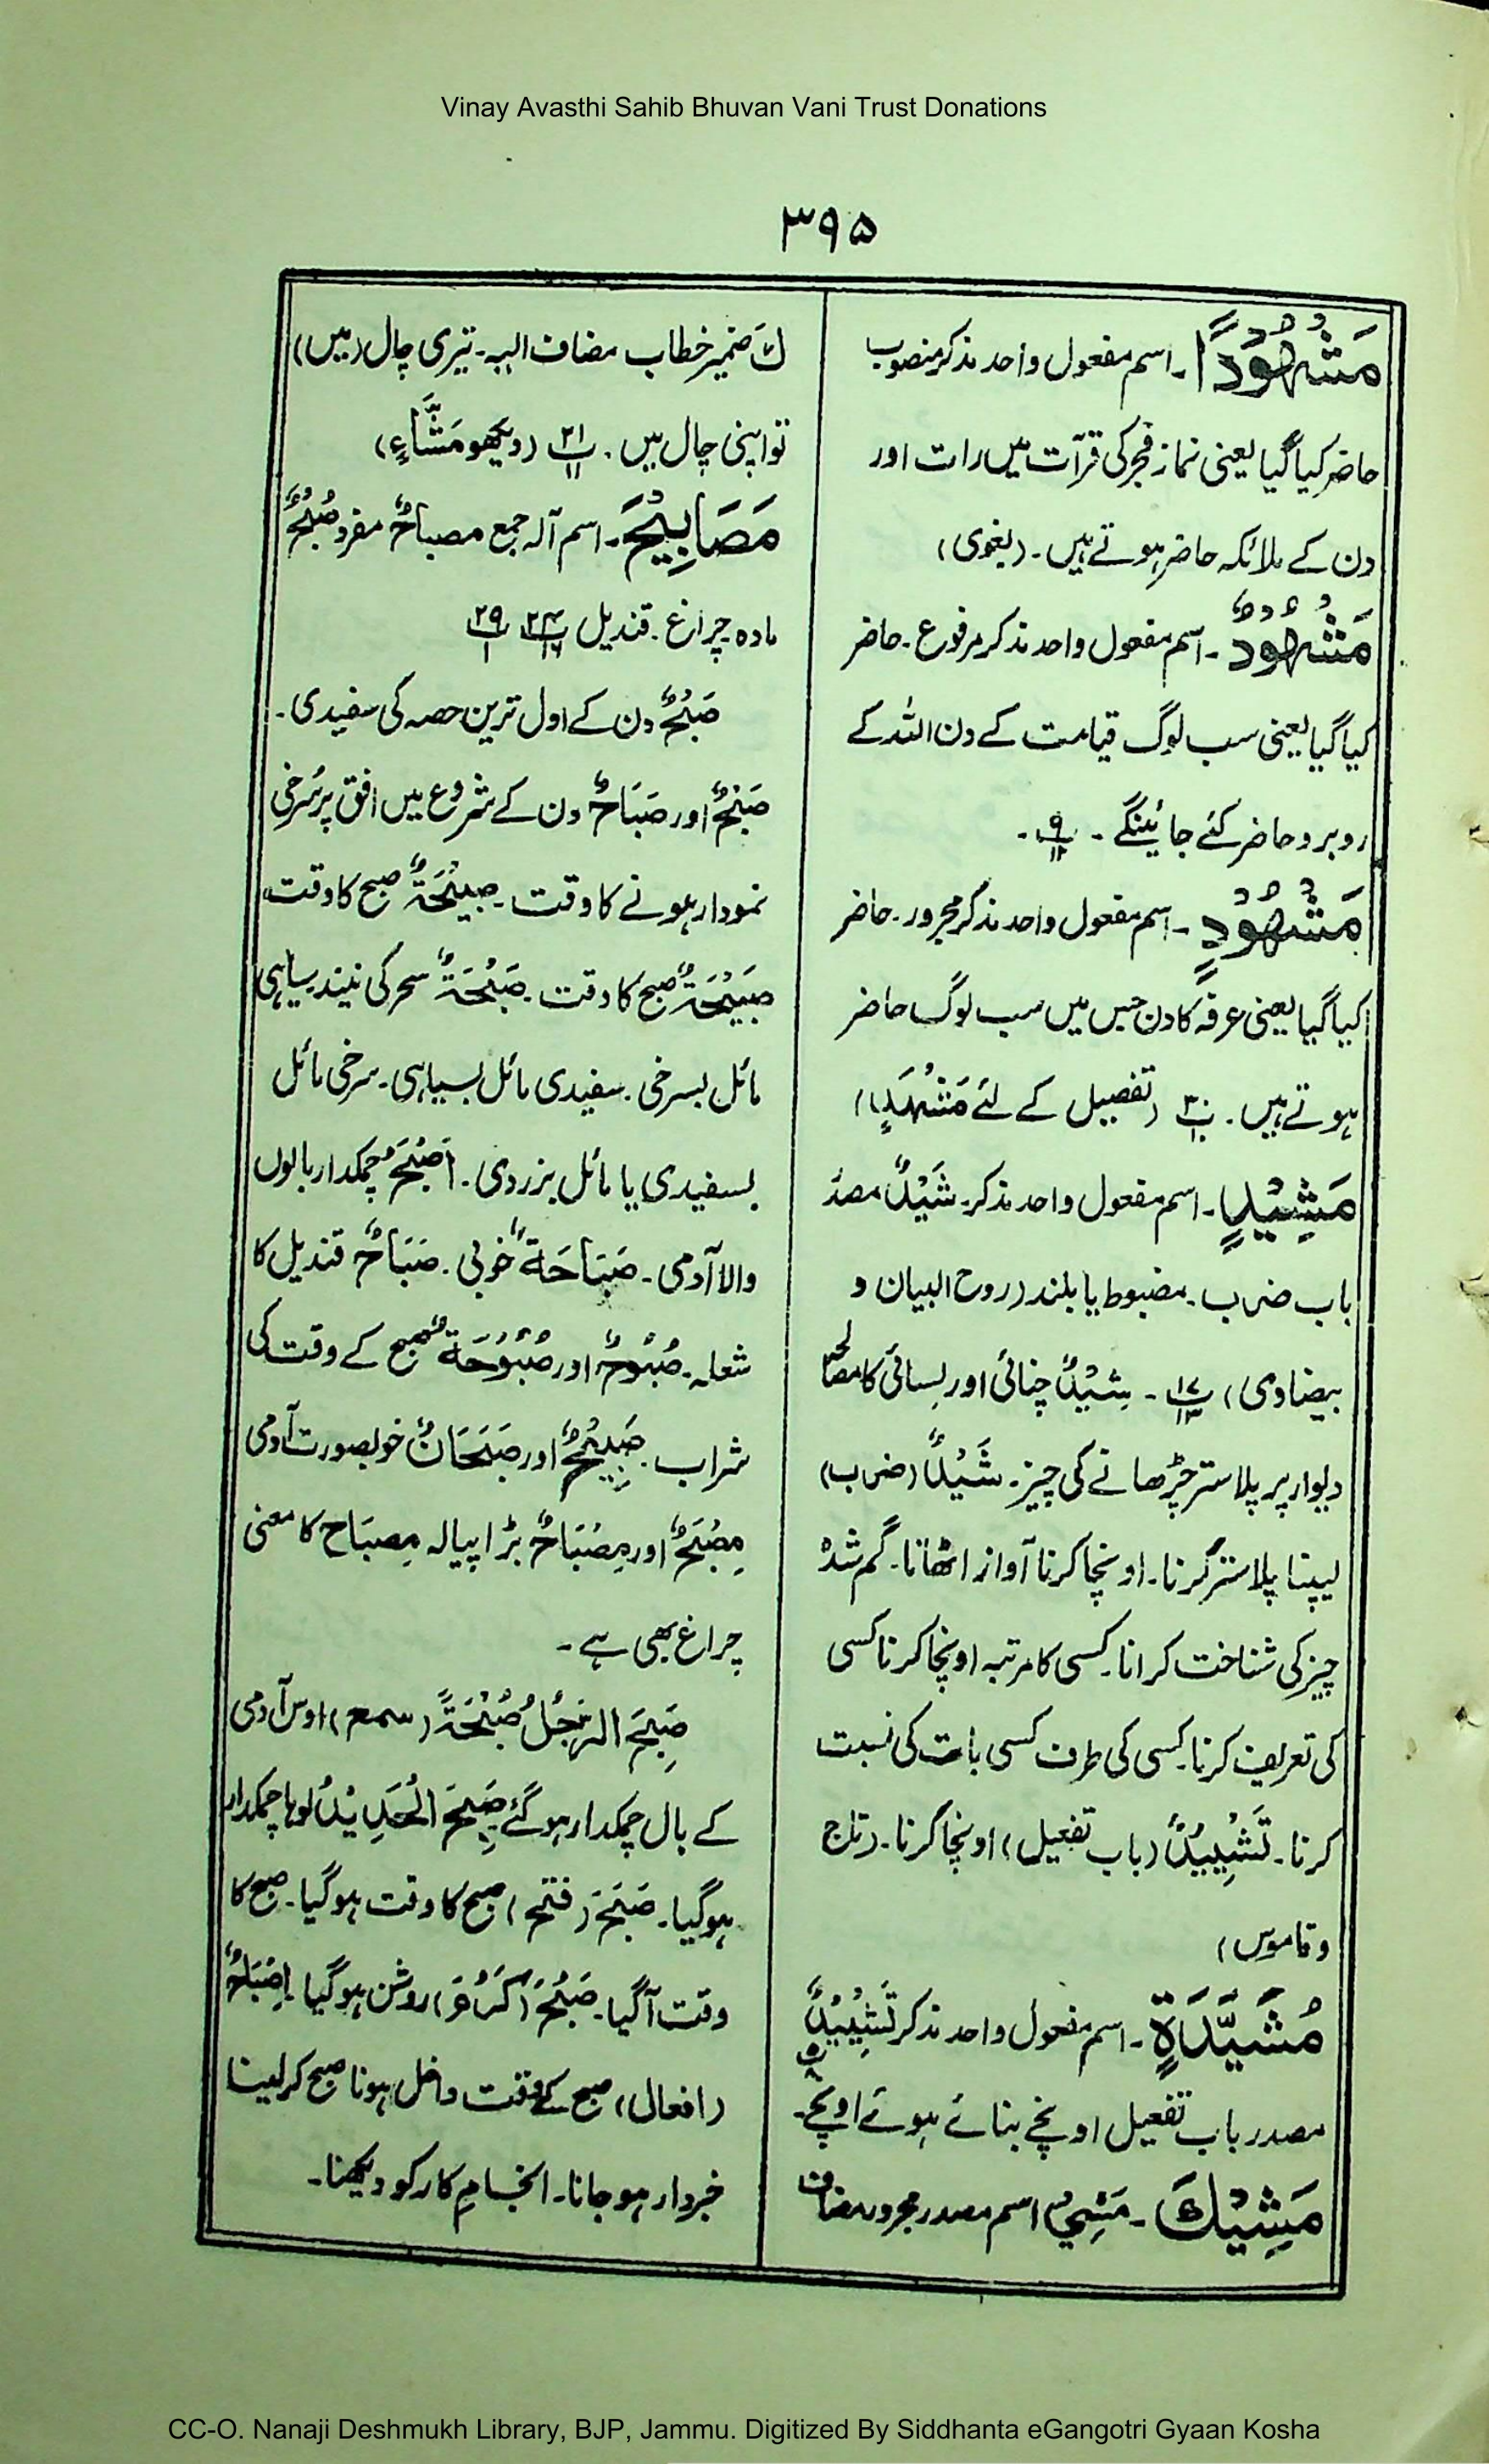 Vinay Avasthi Sahib Bhuvan Vani Trust Donations
۳۹۵
مَشْهُوْدًا۔ اسم مفعول واحد مذکر منصوب
حاضر کیا گیا یعنی نماز فجر کی قرآت میں رات اور
دن کے ملائکہ حاضر ہوتے ہیں۔ (بغوی)
مَشْهُوْدٌ۔ اسم مفعول واحد مذکر مرفوع۔ حاضر
کیا گیا یعنی سب لوگ قیامت کے دن اللہ کے
روبرو حاضر کئے جائینگے ۔
مَشْهُوْدٍ۔ اسم مفعول واحد مذکر مجرور۔ حاضر
کیا گیا یعنی عرفہ کا دن جس میں سب لوگ حاضر
ہوتے ہیں۔ (تفصیل کے لئے مَشْهَدِ)
مَشِیْدٍ۔ اسم مفعول واحد مذکر۔ شَیْدٌ مصدر
باب ضرب۔ مضبوط یا بلند (روح البیان و
بیضاوی) ۱۷/۱۳ ۔ شِیْدٌ چنائی اور لسائی کا مصالح
دیوار پر پلاستر چڑھانے کی چیز۔ شَیْدٌ (ضرب)
لیپنا پلاستر کرنا۔ اونچا کرنا آواز اٹھانا۔ گم شدہ
چیز کی شناخت کرانا۔ کسی کا مرتبہ اونچا کرنا کسی
کی تعریف کرنا۔ کسی کی طرف کسی بات کی نسبت
کرنا۔ تَشْیِیْدٌ (باب تفعیل) اونچا کرنا۔ (تاج
و قاموس)
مُشَیَّدَةٍ۔ اسم مفعول واحد مذکر تَشْیِیْدٌ ۵/۸
مصدر باب تفعیل اونچے بنائے ہوئے اونچے۔
مَشْیِكَ۔ مَشْیِ اسم مصدر مجرور مضاف
كَ ضمیر خطاب مضاف الیہ۔ تیری چال (میں)
تو اپنی چال میں۔ ۲۱/۱۱ (دیکھو مَشَّاءٍ)
مَصَابِیْحَ۔ اسم آلہ جمع مصباحٌ مفرد صُبْحٌ
مادہ چراغ۔ قندیل ۲۴/۱۶ ۲۹/۱
صَبْحٌ دن کے اول ترین حصہ کی سفیدی۔
صَبْحٌ اور صَبَاحٌ دن کے شروع میں افق پر سُرخی
نمودار ہونے کا وقت۔ صَبِیْحَةٌ صبح کا وقت
صَبِیْحَةٌ صبح کا وقت۔ صَبْحَةٌ سحر کی نیند۔ سیاہی
مائل بسرخی۔ سفیدی مائل بسیاہی۔ سرخی مائل
بسفیدی یا مائل بزردی۔ اَصْبَحُ چمکدار بالوں
والا آدمی۔ صَبَاحَةٌ خوبی۔ صَبَاحٌ قندیل کا
شعلہ۔ صُبُوْحٌ اور صُبُوْحَةٌ صبح کے وقت کی
شراب۔ صَبِیْحٌ اور صَبَحَانٌ خوبصورت آدمی
مِصْبَحٌ اور مِصْبَاحٌ بڑا پیالہ مِصبَاح کا معنی
چراغ بھی ہے۔
صَبِحَ الرَّجُلُ صُبْحَةً (سمع) اوس آدمی
کے بال چمکدار ہو گئے صَبِحَ الْحَدِیْدُ لوہا چمکدار
ہو گیا۔ صَبَحَ (فتح) صبح کا وقت ہو گیا۔ صبح کا
وقت آ گیا۔ صَبُحَ (کَرُمَ) روشن ہو گیا۔ اِصْبَاحٌ
(افعال) صبح کے وقت داخل ہونا صبح کر لینا
خبردار ہو جانا۔ انجامِ کار کو دیکھنا۔
CC-O. Nanaji Deshmukh Library, BJP, Jammu. Digitized By Siddhanta eGangotri Gyaan Kosha